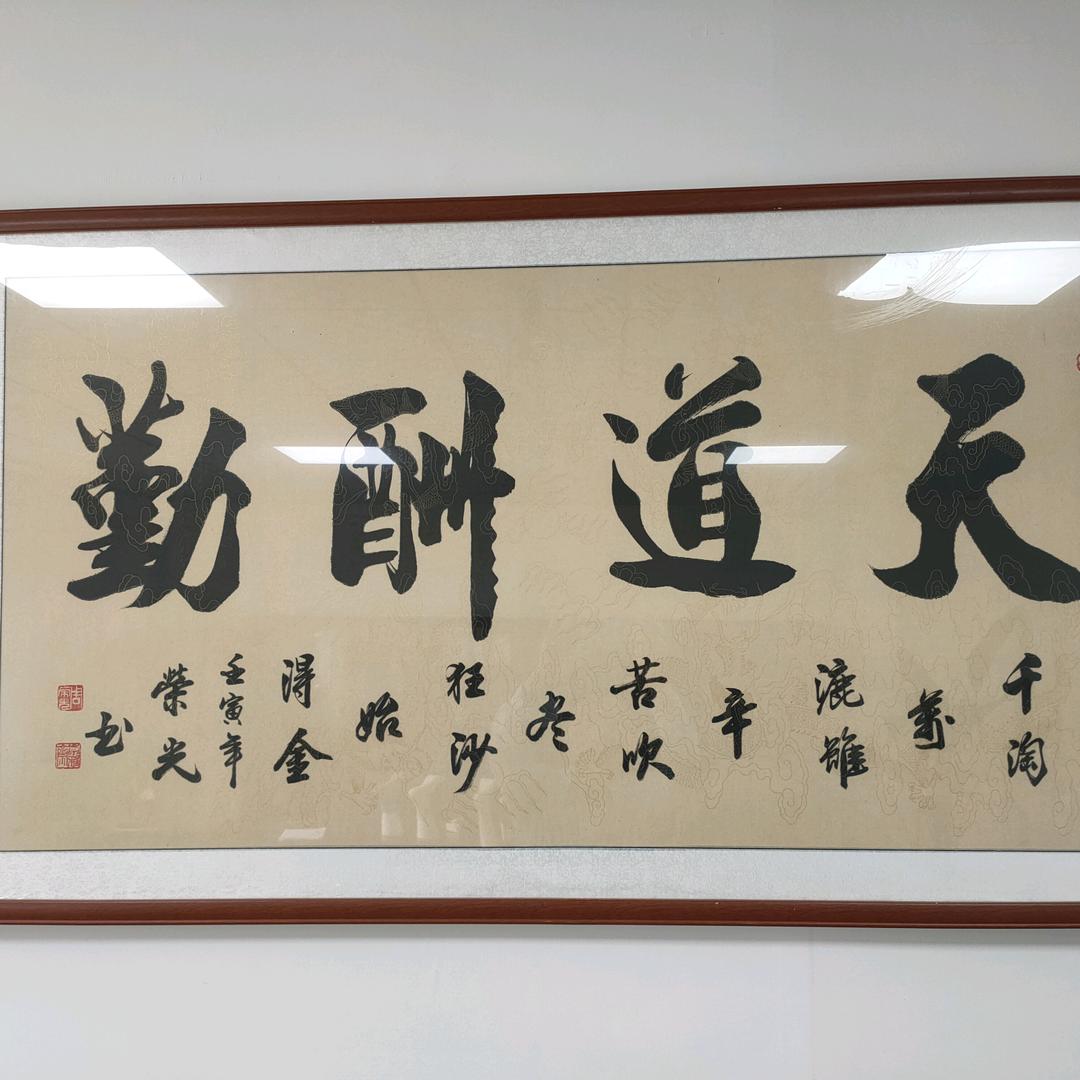 天道酬勤
千淘萬漉雖辛苦吹尽狂沙始得金
壬寅年
榮光书